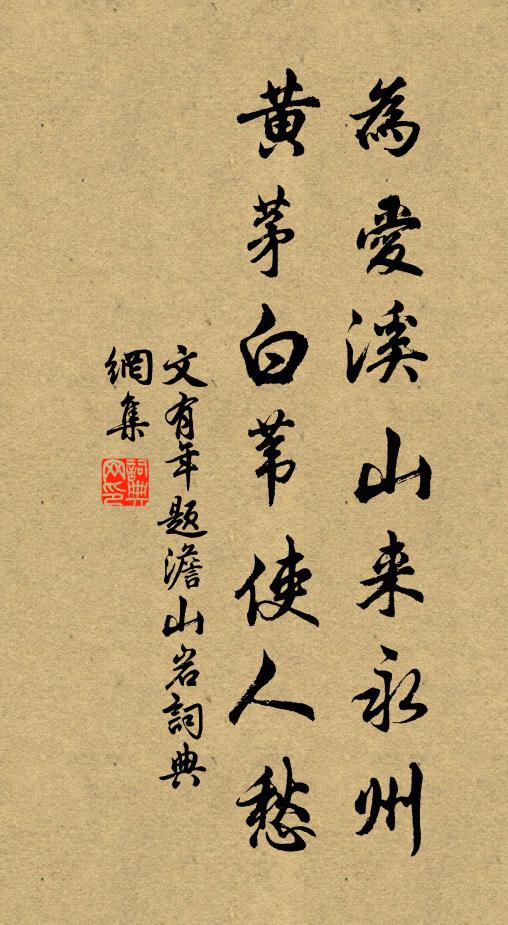 為愛溪山来永州
黃茅白苇使人愁
文有年題澹山岩詞典
網集
詞典网印